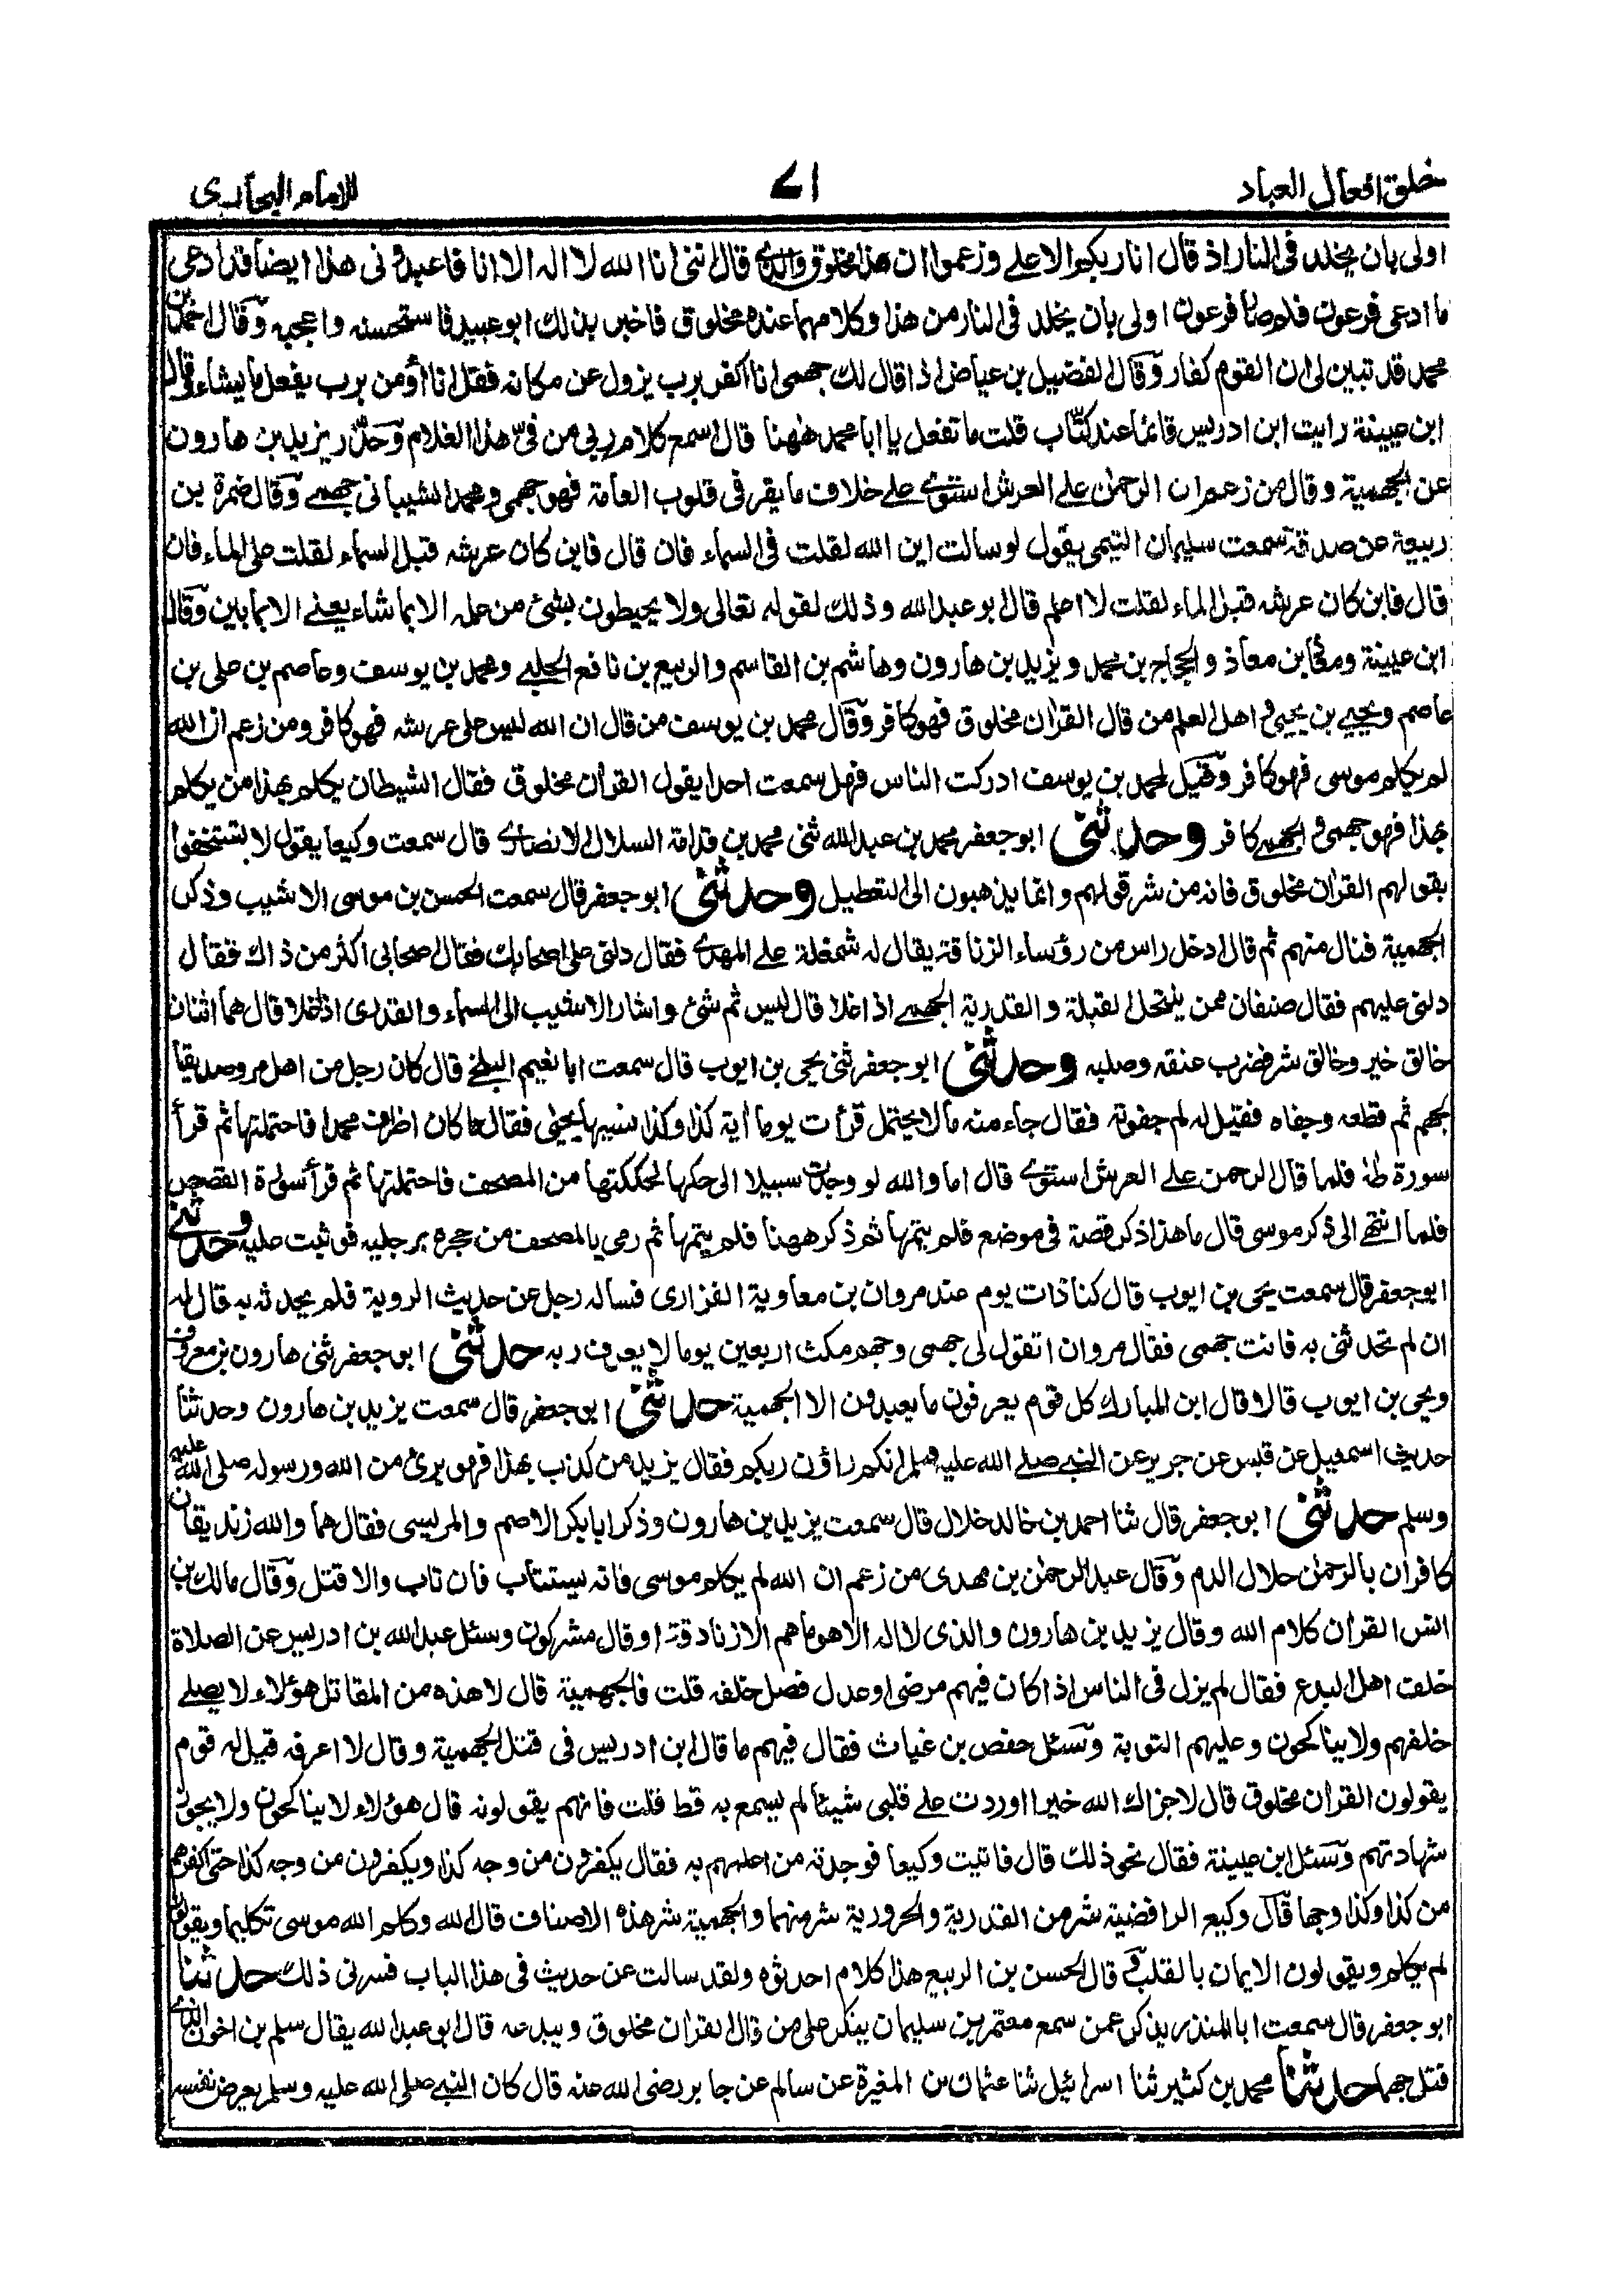 خلق افعال العباد
۷۱
للامام البخاری
اولى بان يخلد فى النار اذ قال انا ربكم الاعلے وزعموا ان هذا مخلوق والذے قال اننى انا الله لا اله الا انا فاعبدنى هذا ايضا قد ادعى
ما ادعى فرعون فلم صار فرعون اولى بان يخلد فى النار من هذا وكلامهما عنده مخلوق فاخبر بذلك ابو عبيد فاستحسنه واعجبه وقال احمد بن
محمد قد تبين لى ان القوم كفار وقال الفضيل بن عياض اذا قال لك جهمى انا اكفر برب يزول عن مكانه فقل انا أومن برب يفعل ما يشاء قال
ابن عيينة رايت ابن ادريس قائما عند كتّاب قلت ما تفعل يا ابا محمد ههنا قال اسمع كلام ربى من فىّ هذا الغلام وحذّر يزيد بن هارون
عن الجهمية وقال من زعم ان الرحمٰن علے العرش استوےٰ علے خلاف ما يقر فى قلوب العامة فهو جهمى ومحمد الشيبانى جهمے وقال ضمرة بن
ربيعة عن صدقة سمعت سليمان التيمى يقول لو سالت اين الله لقلت فى السماء فان قال فاين كان عرشه قبل السماء لقلت على الماء فان
قال فاين كان عرشه قبل الماء لقلت لا اعلم قال ابو عبد الله وذلك لقوله تعالى ولا يحيطون بشئ من علمه الا بما شاء يعنے الا بما بين وقال
ابن عيينة ومعٰذ بن معاذ والحجاج بن محمد ويزيد بن هارون وهاشم بن القاسم والربيع بن نافع الحلبے ومحمد بن يوسف وعاصم بن على بن
عاصم ويحيے بن يحيى و اهل العلم من قال القرٰان مخلوق فهو كافر وقال محمد بن يوسف من قال ان الله ليس على عرشه فهو كافر ومن زعم ان الله
لم يكلم موسى فهو كافر وقيل لمحمد بن يوسف ادركت الناس فهل سمعت احدا يقول القرأن مخلوق فقال الشيطان يكلم بهذا من يكلم
بهذا فهو جهمى والجهمے كافر وحدثنى ابو جعفر محمد بن عبد الله ثنى محمد بن قدامة السلال الانصارے قال سمعت وكيعا يقول لا تستخفوا
بقولهم القرٰان مخلوق فانه من شر قولهم وانما يذهبون الى التعطيل وحدثنى ابو جعفر قال سمعت الحسن بن موسى الاشيب وذكر
الجهمية فنال منهم ثم قال ادخل راس من رؤساء الزنادقة يقال له شمغلة علے المهدے فقال دلنى على اصحابك فقال اصحابى اكثر من ذاك فقال
دلنى عليهم فقال صنفان ممن ينتحل القبلة والقدرية الجهمے اذا خلا قال ليس ثم شئ واشار الاشيب الى السماء والقدرى اذا خلا قال هما اثنان
خالق خير وخالق شر فضرب عنقه وصلبه وحدثنى ابو جعفر ثنى يحيى بن ايوب قال سمعت ابا نعيم البلخے قال كان رجل من اهل مرو صديقا
لجهم ثم قطعه وجفاه فقيل له لم جفوته فقال جاء منه ما لا يحتمل قرأت يوما أية كذا وكذا نسيها يحيٰى فقال ما كان اظرف محمدا فاحتملتها ثم قرأ
سورة طٰهٰ فلما قال الرحمن علے العرش استوے قال اما والله لو وجدت سبيلا الى حكها لحككتها من المصحف فاحتملتها ثم قرأ سورة القصص
فلما انتهے الى ذكر موسى قال ما هذا ذكر قصة فى موضع فلم يتمها ثم ذكر ههنا فلم يتمها ثم رمى بالمصحف من حجره برجليه فوثبت عليه وحدثنى
ابو جعفر قال سمعت يحيى بن ايوب قال كنا ذات يوم عند مروان بن معاوية الفزارى فساله رجل عن حديث الروية فلم يحدثه به قال له
ان لم تحدثنى به فانت جهمى فقال مروان اتقول لى جهمى وجهم مكث اربعين يوما لا يعرف ربه حدثنى ابو جعفر ثنى هارون بن معروف
ويحيى بن ايوب قالا قال ابن المبارك كل قوم يعرفون ما يعبدون الا الجهمية حدثنى ابو جعفر قال سمعت يزيد بن هارون وحدثنا
حديث اسمعيل عن قيس عن جرير عن النبے صلے الله عليه وسلم انكم راؤن ربكم فقال يزيد من كذب بهذا فهو برئ من الله ورسوله صلى الله عليه
وسلم حدثنى ابو جعفر قال ثنا احمد بن خالد خلال قال سمعت يزيد بن هارون وذكر ابا بكر الاصم والمريسى فقال هما والله زنديقان
كافران بالرحمٰن حلال الدم وقال عبد الرحمٰن بن مهدى من زعم ان الله لم يكلم موسى فانه يستتاب فان تاب والا قتل وقال مالك بن
انس القرٰان كلام الله وقال يزيد بن هارون والذى لا اله الا هو ما هم الا زنادقة او قال مشركون وسئل عبد الله بن ادريس عن الصلاة
خلف اهل البدع فقال لم يزل فى الناس اذا كان فيهم مرضى او عدل فصل خلفه قلت فالجهمية قال لا هذه من المقاتل هؤلاء لا يصلے
خلفهم ولا يناكحون وعليهم التوبة وسئل حفص بن غياث فقال فيهم ما قال ابن ادريس فى قتل الجهمية وقال لا اعرفه قيل له قوم
يقولون القرٰان مخلوق قال لا جزاك الله خيرا اوردت علے قلبى شيئا لم يسمع به قط قلت فانهم يقولونه قال هؤلاء لا يناكحون ولا يجوز
شهادتهم وسئل ابن عيينة فقال نحو ذلك قال فاتيت وكيعا فوجدته من اعلمهم به فقال يكفرون من وجه كذا ويكفرون من وجه كذا حتى اكفرهم
من كذا وكذا وجها قال وكيع الرافضية شر من القدرية والحرورية شر منهما والجهمية شر هذه الاصناف قال الله وكلم الله موسى تكليما ويقولون
لم يكلم ويقولون الايمان بالقلب قال الحسن بن الربيع هذا كلام احدثوه ولقد سالت عن حديث فى هذا الباب فسرنى ذلك حدثنا
ابو جعفر قال سمعت ابا المنذر يذكر عمن سمع معتمر بن سليمان ينكر على من قال القرٰان مخلوق ويبدعه قال ابو عبد الله يقال سلم بن اخوز الذے
قتل جهما حدثنا محمد بن كثير ثنا اسرائيل ثنا عثمان بن المغيرة عن سالم عن جابر رضى الله عنه قال كان النبے صلى الله عليه وسلم يعرض نفسه